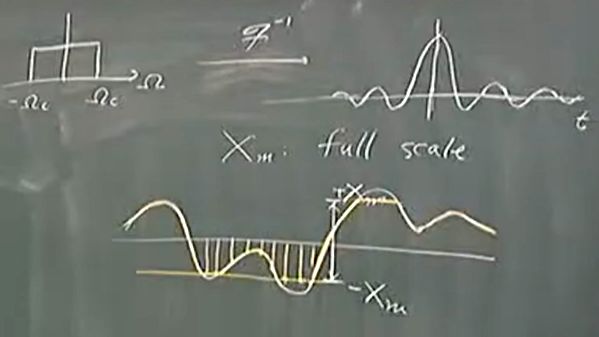 ℱ⁻¹
-Ωc Ωc Ω
t
Xm: full scale
+Xm
-Xm